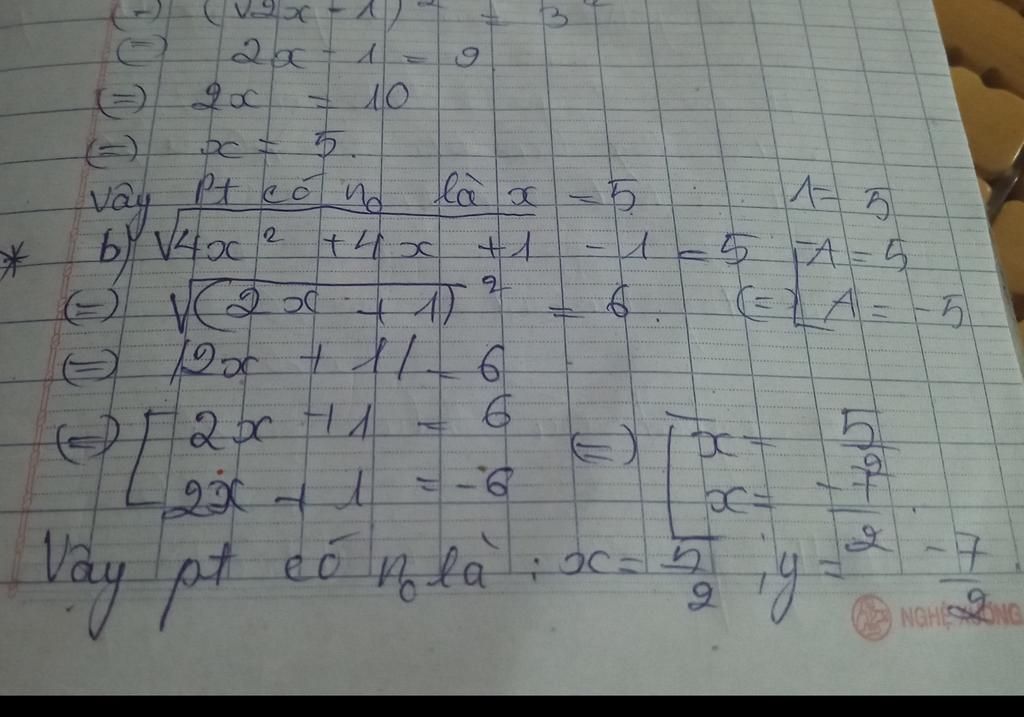 (=) (√2x - 1)² = 3²
(=) 2x - 1 = 9
(=) 2x = 10
(=) x = 5.
Vậy pt có n₀ là x = 5
1 = 5
* b) √4x² + 4x + 1 - 1 = 5
[A = 5
(=) √(2x + 1)² = 6.
(=) [A = -5
(=) |2x + 1| = 6
(=) [2x + 1 = 6
(=) [x = 5/2
2x + 1 = -6
x = -7/2.
Vậy pt có n₀ là : x = 5/2 ; y = -7/2